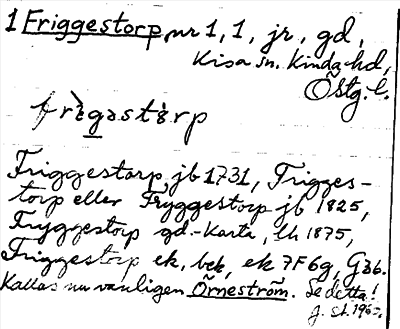 1 Friggestorp, nr 1, 1, jr, gd,
Kisa sn. Kinda hd,
Östg. l.
frìgəstòrp
Friggestorp jb 1731, Frigges-
torp eller Fryggestorp jb 1825,
Fryggestorp gd.-karta, lh 1875,
Friggestorp ek, bek, ek 7F6g, G36.
Kallas nu vanligen Örneström. Se detta!